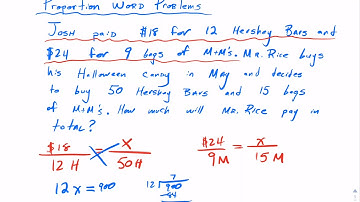 Proportion Word Problems
Josh paid $18 for 12 Hershey Bars and
$24 for 9 bags of M+M's. Mr. Rice buys
his Halloween candy in May and decides
to buy 50 Hershey Bars and 15 bags
of M+M's. How much will Mr. Rice pay in
total?
$18 / 12 H = x / 50 H
$24 / 9 M = x / 15 M
12x = 900
7
12 900
84